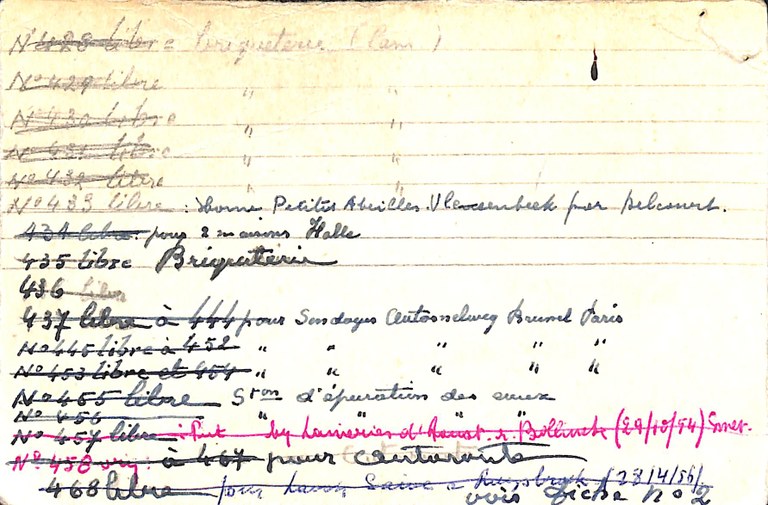 N° 428 libre briqueterie (Lam )
N° 429 libre " "
N° 430 libre " "
N° 431 libre " "
N° 432 libre " "
N° 433 libre : Home Petites Abeilles Vlezenbeek par Delcourt.
434 libre. pour 2 maisons Halle
435 libre Briqueterie
436 libre
437 libre à 444 pour Sondages Brunel Paris
N° 445 libre à 452 " " " " "
N° 453 libre et 454 " " " " "
N° 455 libre Ston d'épuration des eaux
N° 456 " " " "
N° 457 libre : Puit by Laineries d' r. (29/10/54)
N° 458 à 467 pour
468 libre pour (28/4/56)
voir fiche no 2